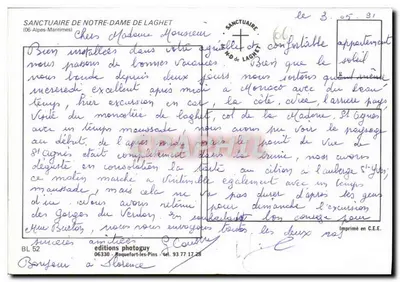 SANCTUAIRE DE NOTRE-DAME DE LAGHET
(06 Alpes-Maritimes)
SANCTUAIRE
N-D DE LAGHET
le 3-05-91
Cher Madame Monsieur
Bien installées dans votre agréable et confortable appartement
nous passons de bonnes vacances. Bien que le soleil
nous boude depuis deux jours nous sortons quand même
mercredi excellent après midi à Monaco avec du beau
temps, hier excursion en car la côte, arrière pays
visite du monastère de laghet, col de la Madone. St Agnès
avec un temps maussade nous avons pu voir le paysage
au début de
St Agnès était complètement dans la brume, nous avons
dégusté en consolation la tarte au citron à l'auberge St Yves,
ce matin marche à Vintimille également avec un temps
maussade, mais cela ne va pas durer d'après les gens
d'ici nous avons retenu pour dimanche l'excursion
des Gorges du Verdon. En souhaitant bon courage pour
nous vous envoyons toutes les deux nos
sincères amitiés
Bonjour à Florence
BL 52
editions photoguy
06330 - Roquefort-les-Pins - tél. 93 77 17 28
Imprimé en C.E.E.